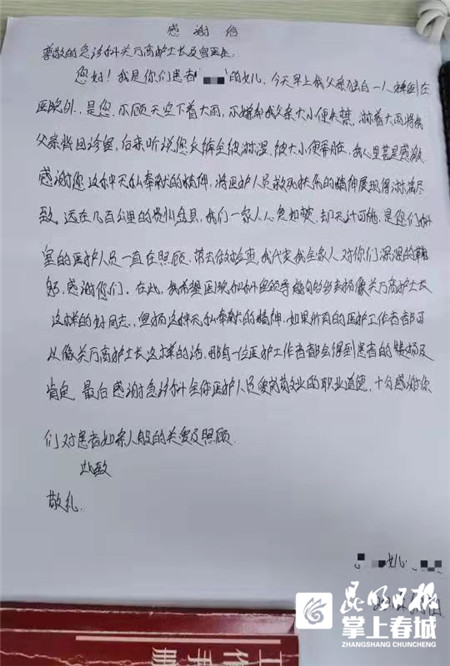 感谢信
尊敬的急诊科关万高护士长及曾医生
您好!我是你们患者的女儿,今天早上我父亲独自一人摔倒在
医院外,是您,不顾天空下着大雨,不嫌弃我父亲大小便失禁,淋着大雨将我
父亲救回诊室,后来听说您衣裤全被淋湿,被大小便弄脏,我心里甚是感激
感谢您这种无私奉献的精神,将医护人员救死扶伤的精神展现得淋漓尽
致。远在几百公里的贵州盘县,我们一家人心急如焚,却无计可施,是您们科
室的医护人员一直在照顾、带去做检查,我代表我全家人对你们深深的鞠
躬,感谢你们。在此,我希望医院和科室领导能多多表扬像关万高护士长
这样的好同志,这种无私奉献的精神,如果所有的医护工作者都可
以像关万高护士长这样的话,那每一位医护工作者都会得到患者的赞扬及
肯定。最后感谢急诊科全体医护人员爱岗敬业的职业道德,十分感谢你
们对患者如亲人般的关爱及照顾。
此致
敬礼
女儿
昆明日报
掌上春城
ZHANGSHANG CHUNCHENG
工作手册